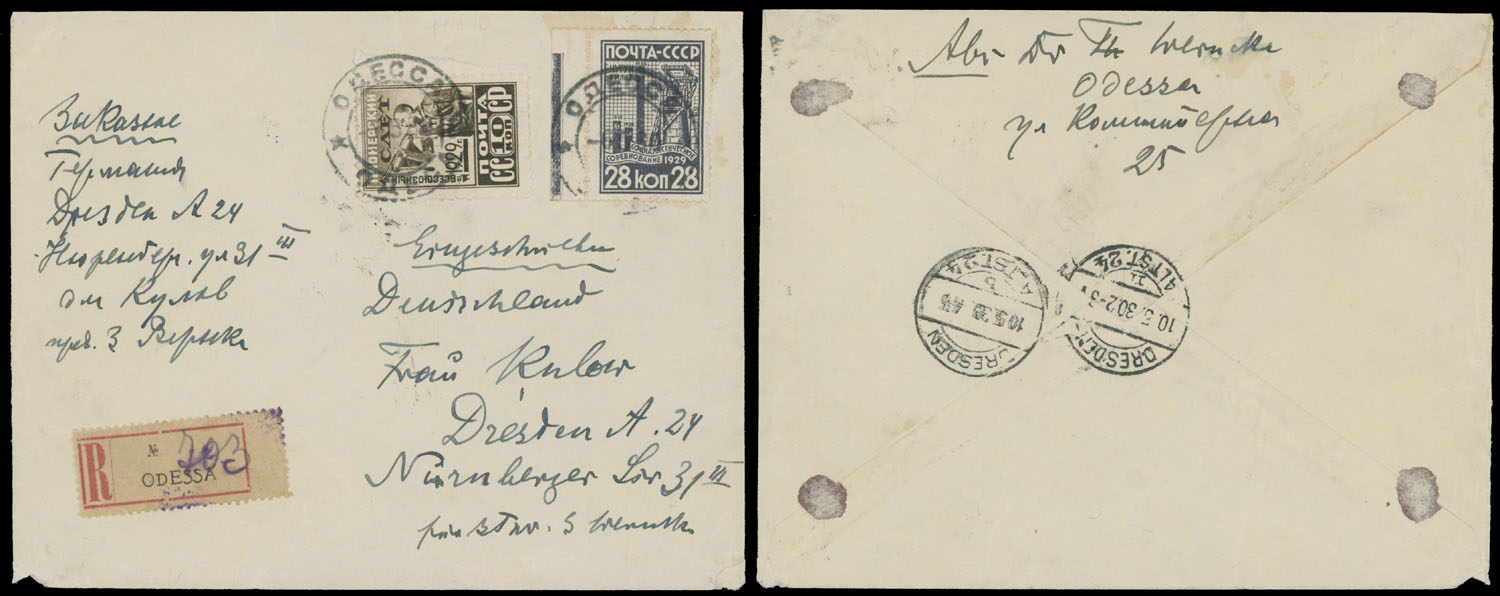 Заказное
Германия
Dresden A 24
Нюренбер. ул 31 III
для Кулов
ОДЕССА
ПИОНЕРСКИЙ
СЛЕТ
1929
ВСЕСОЮЗНЫЙ
ПОЧТА
СССР
10 КОП
ПОЧТА-СССР
ОДЕССА
СОЦИАЛИСТИЧЕСКОЕ
СОРЕВНОВАНИЕ 1929
28 КОП 28
Eingeschrieben
Deutschland
Frau Kulow
Dresden A. 24
Nürnberger Str 31 III
R
№ 703
ODESSA
Abs Dr Th Wernke
Odessa
ул
25
DRESDEN
10.5.30
ALTST. 24
DRESDEN
10.5.30 2-3
ALTST. 24